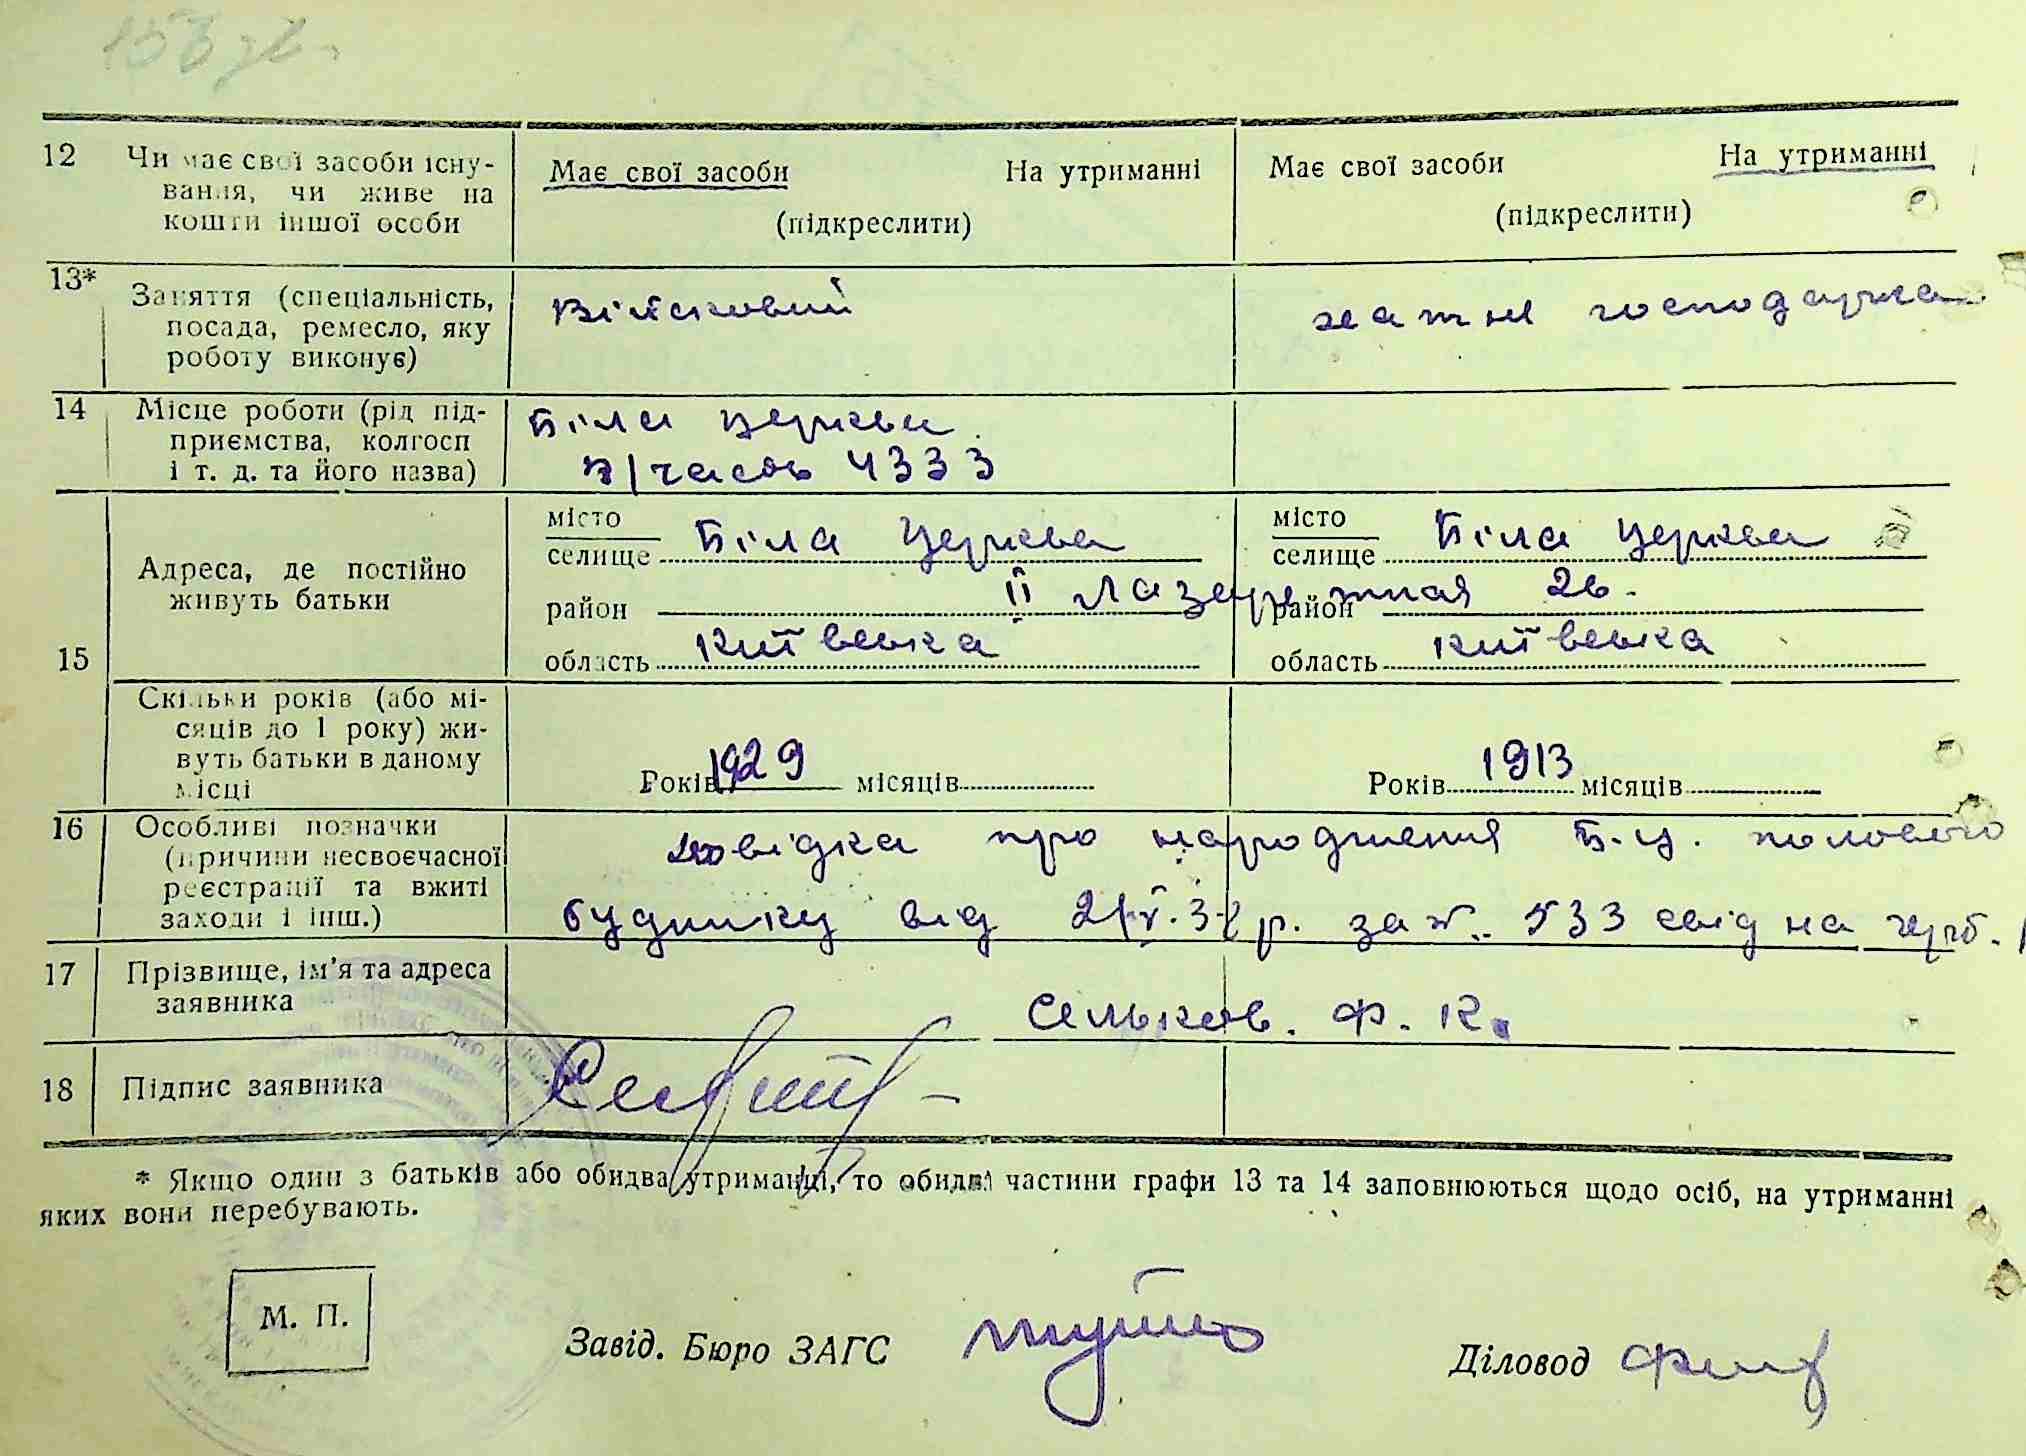 12 Чи має свої засоби існу- Має свої засоби На утриманні Має свої засоби На утриманні
вання, чи живе на
кошти іншої особи (підкреслити) (підкреслити)
13* Заняття (спеціальність, Військовий хатня господарка
посада, ремесло, яку
роботу виконує)
14 Місце роботи (рід під- Біла Церква
приємства, колгосп п/часть 4333
і т. д. та його назва)
15 Адреса, де постійно
живуть батьки
місто Біла Церква місто Біла Церква
селище селище
район II Лазаретная 26. район
область Київська область Київська
Скільки років (або мі-
сяців до 1 року) жи-
вуть батьки в даному
місці
Років 1929 місяців Років 1913 місяців
16 Особливі позначки Довідка про народження Б.Ц. полового
(причини несвоєчасної
реєстрації та вжиті будинку від р. за №. 533 свід на
заходи і інш.)
17 Прізвище, ім'я та адреса
заявника Сельков. Ф. К.
18 Підпис заявника
* Якщо один з батьків або обидва утриманці, то обидві частини графи 13 та 14 заповнюються щодо осіб, на утриманні
яких вони перебувають.
М. П.
Завід. Бюро ЗАГС Діловод